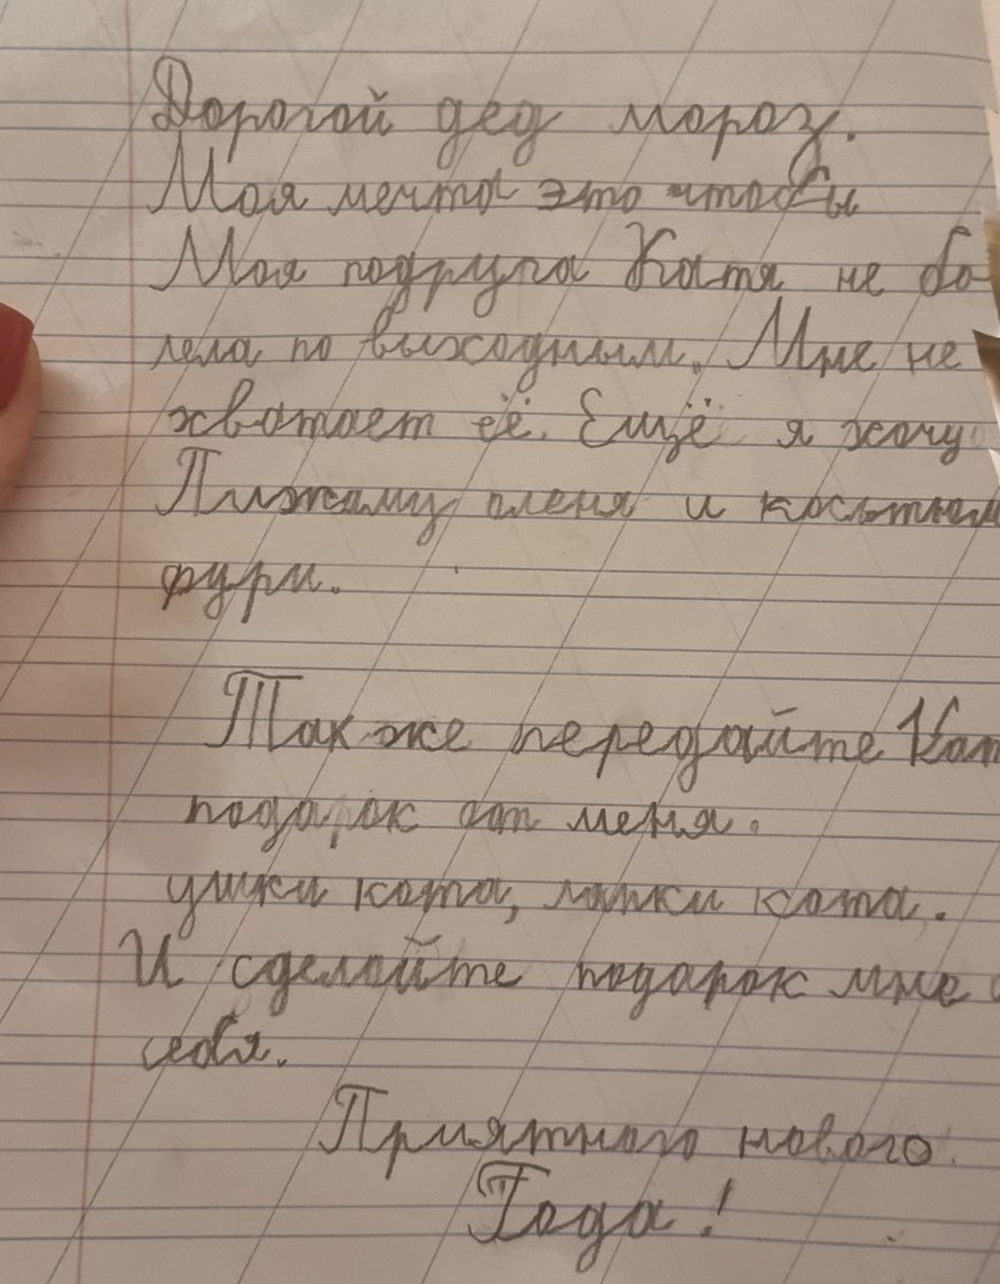 Дорогой дед мороз.
Моя мечта это чтобы
Моя подруга Катя не бо-
лела по выходным. Мне не
хватает её. Ещё я хочу
Пижаму оленя и
фури.
Так же передайте
подарок от меня.
ушки кота, лапки кота.
И сделайте подарок мне
себя.
Приятного нового
Года!